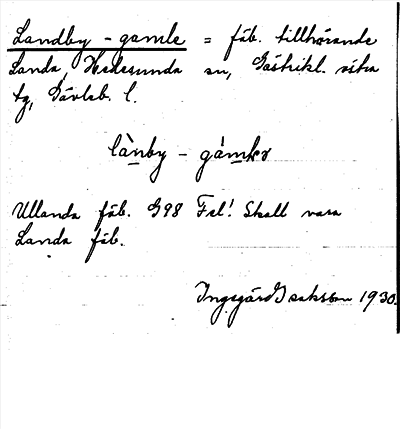 Landby - gamle = fäb. tillhörande
Landa, Hedesunda sn, Gästrikl. östra
tg, Gävleb. l.
lànby - gámlɞ
Ullanda fäb. G98 Fel! Skall vara
Landa fäb.
Ingegärd Isaksson 1930.